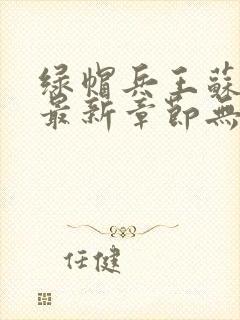 绿帽兵王蘇
最新章節無
任健